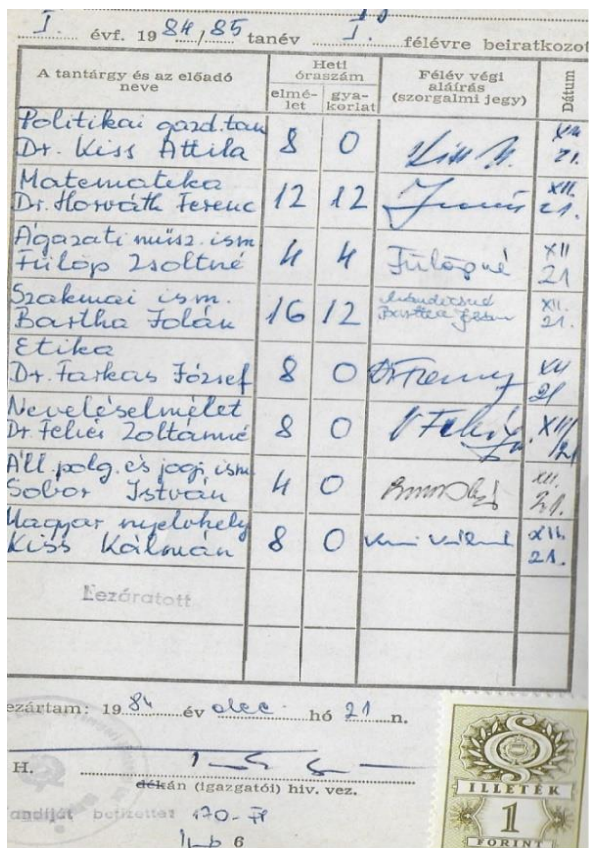 I. évf. 1984/85 tanév I. félévre beiratkozot
A tantárgy és az előadó neve
Heti óraszám
elmé-let
gya-korlat
Félév végi aláírás (szorgalmi jegy)
Dátum
Politikai gazd.tan
Dr. Kiss Attila 8 0 XII. 21.
Matematika
Dr. Horváth Ferenc 12 12 XII. 21.
Ágazati műsz. ism
Fülöp Zsoltné 4 4 Fülöpné XII 21
Szakmai ism.
Bartha Zolán 16 12 XII. 21.
Etika
Dr. Farkas József 8 0 XII 21
Neveléselmélet
Dr Fehér Zoltánné 8 0 XII/21
Áll. polg. és jogi ism
Sobor István 4 0 XII. 21.
Magyar nyelvhely
Kiss Kálmán 8 0 XII. 21.
Lezáratott
ezártam: 1984 év dec. hó 21 n.
H.
dékán (igazgatói) hiv. vez.
andíját befizette: 170.- Ft
6
ILLETÉK
1
FORINT